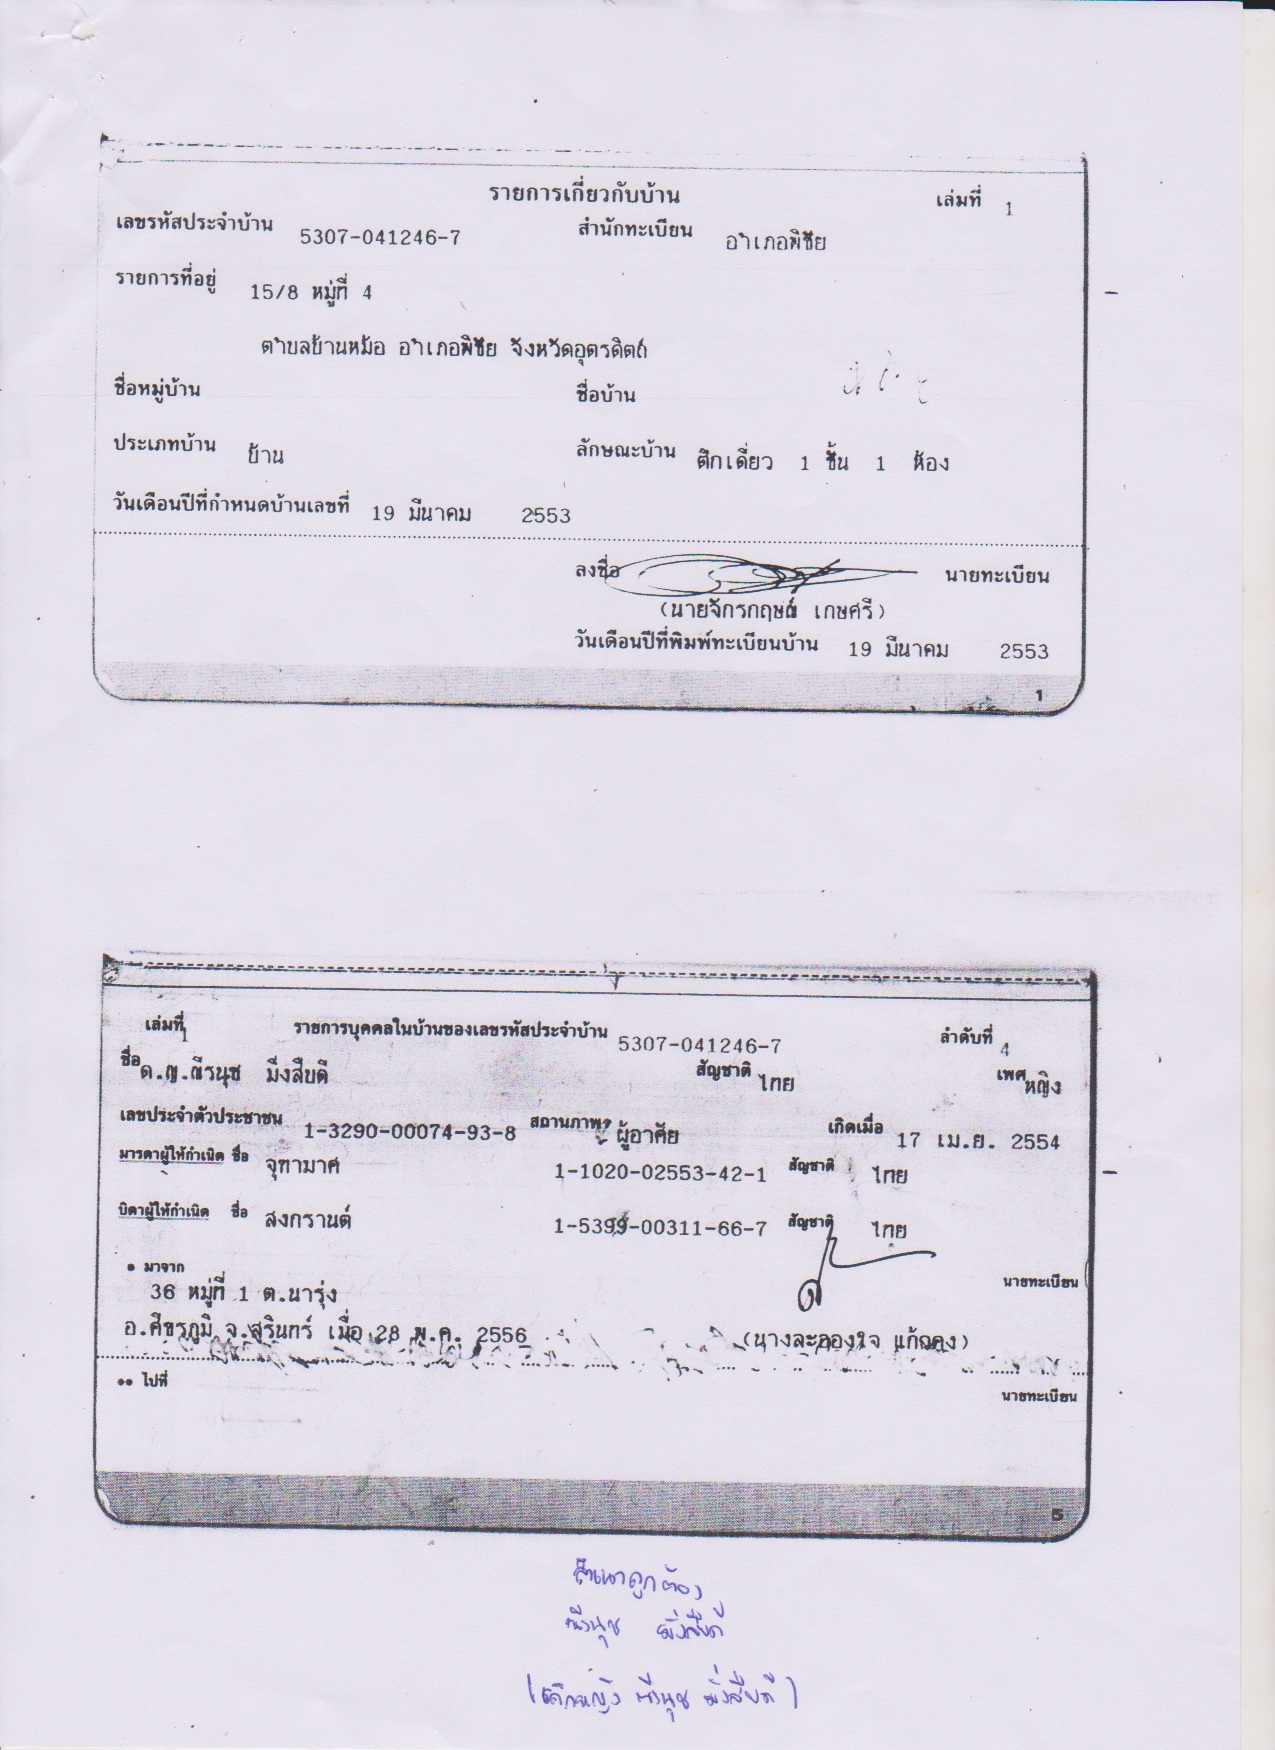 รายการเกี่ยวกับบ้าน เล่มที่ 1
เลขรหัสประจำบ้าน 5307-041246-7 สำนักทะเบียน อำเภอพิชัย
รายการที่อยู่ 15/8 หมู่ที่ 4
ตำบลบ้านหม้อ อำเภอพิชัย จังหวัดอุตรดิตถ์
ชื่อหมู่บ้าน ชื่อบ้าน
ประเภทบ้าน บ้าน ลักษณะบ้าน ตึกเดี่ยว 1 ชั้น 1 ห้อง
วันเดือนปีที่กำหนดบ้านเลขที่ 19 มีนาคม 2553
ลงชื่อ นายทะเบียน
(นายจักรกฤษณ์ เกษศรี)
วันเดือนปีที่พิมพ์ทะเบียนบ้าน 19 มีนาคม 2553
1
เล่มที่ 1 รายการบุคคลในบ้านของเลขรหัสประจำบ้าน 5307-041246-7 ลำดับที่ 4
ชื่อ ด.ญ.ณีรนุช มิ่งสืบดี สัญชาติ ไทย เพศ หญิง
เลขประจำตัวประชาชน 1-3290-00074-93-8 สถานภาพ ผู้อาศัย เกิดเมื่อ 17 เม.ย. 2554
มารดาผู้ให้กำเนิด ชื่อ จุฑามาศ 1-1020-02553-42-1 สัญชาติ ไทย
บิดาผู้ให้กำเนิด ชื่อ สงกรานต์ 1-5399-00311-66-7 สัญชาติ ไทย
* มาจาก
36 หมู่ที่ 1 ต.นารุ่ง นายทะเบียน
อ.ศีขรภูมิ จ.สุรินทร์ เมื่อ 28 พ.ค. 2556 (นางละอองใจ แก้วคง)
** ไปที่ นายทะเบียน
5
สำเนาถูกต้อง
ณีรนุช มิ่งสืบดี
(เด็กหญิง ณีรนุช มิ่งสืบดี)